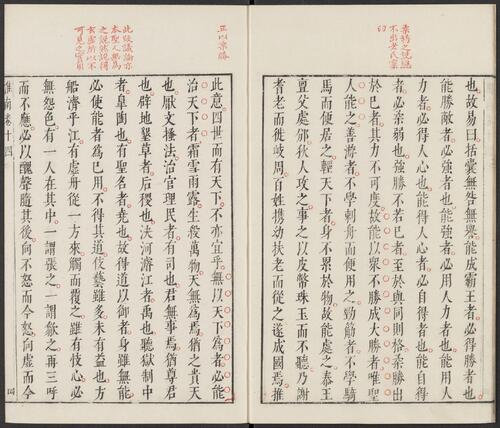 柔特之說總
不出老氏窠
臼
也故易曰括囊無咎無譽能成霸王者必得勝者也
能勝敵者必強者也能強者必用人力者也能用人
力者必得人心也能得人心者必自得者也能自得
者必柔弱也強勝不若己者至於與同則格柔勝出
於己者其力不可度故能以眾不勝成大勝者唯聖
人能之善游者不學刺舟而便用之勁䈥者不學騎
馬而便居之輕天下者身不累於物故能處之泰王
亶父處邠狄人攻之事之以皮幣珠玉而不聽乃謝
耆老而徙岐周百姓攜幼扶老而從之遂成國焉推
正以柔勝
此意四世而有天下不亦宜乎無以天下為者必能
治天下者霜雪雨露生殺萬物天無為焉猶之貴天
也厭文搔法治官理民者有司也君無事焉猶尊君
也辟地墾草者后稷也決河濬江者禹也聽獄制中
者皐陶也有聖名者堯也故得道以御者身雖無能
必使能者為己用不得其道伎藝雖多未有益也方
船濟乎江有虛舟從一方來觸而覆之雖有忮心必
無怨色有一人在其中一謂張之一謂歙之再三呼
而不應必以醜聲隨其後向不怒而今怒向虛而今
此段議論亦
本聖人無為
之說然說得
玄虛所以不
可見之實用
淮南卷十四
四